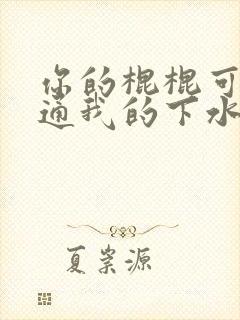 你的棍棍可
通我的下水
夏岽源